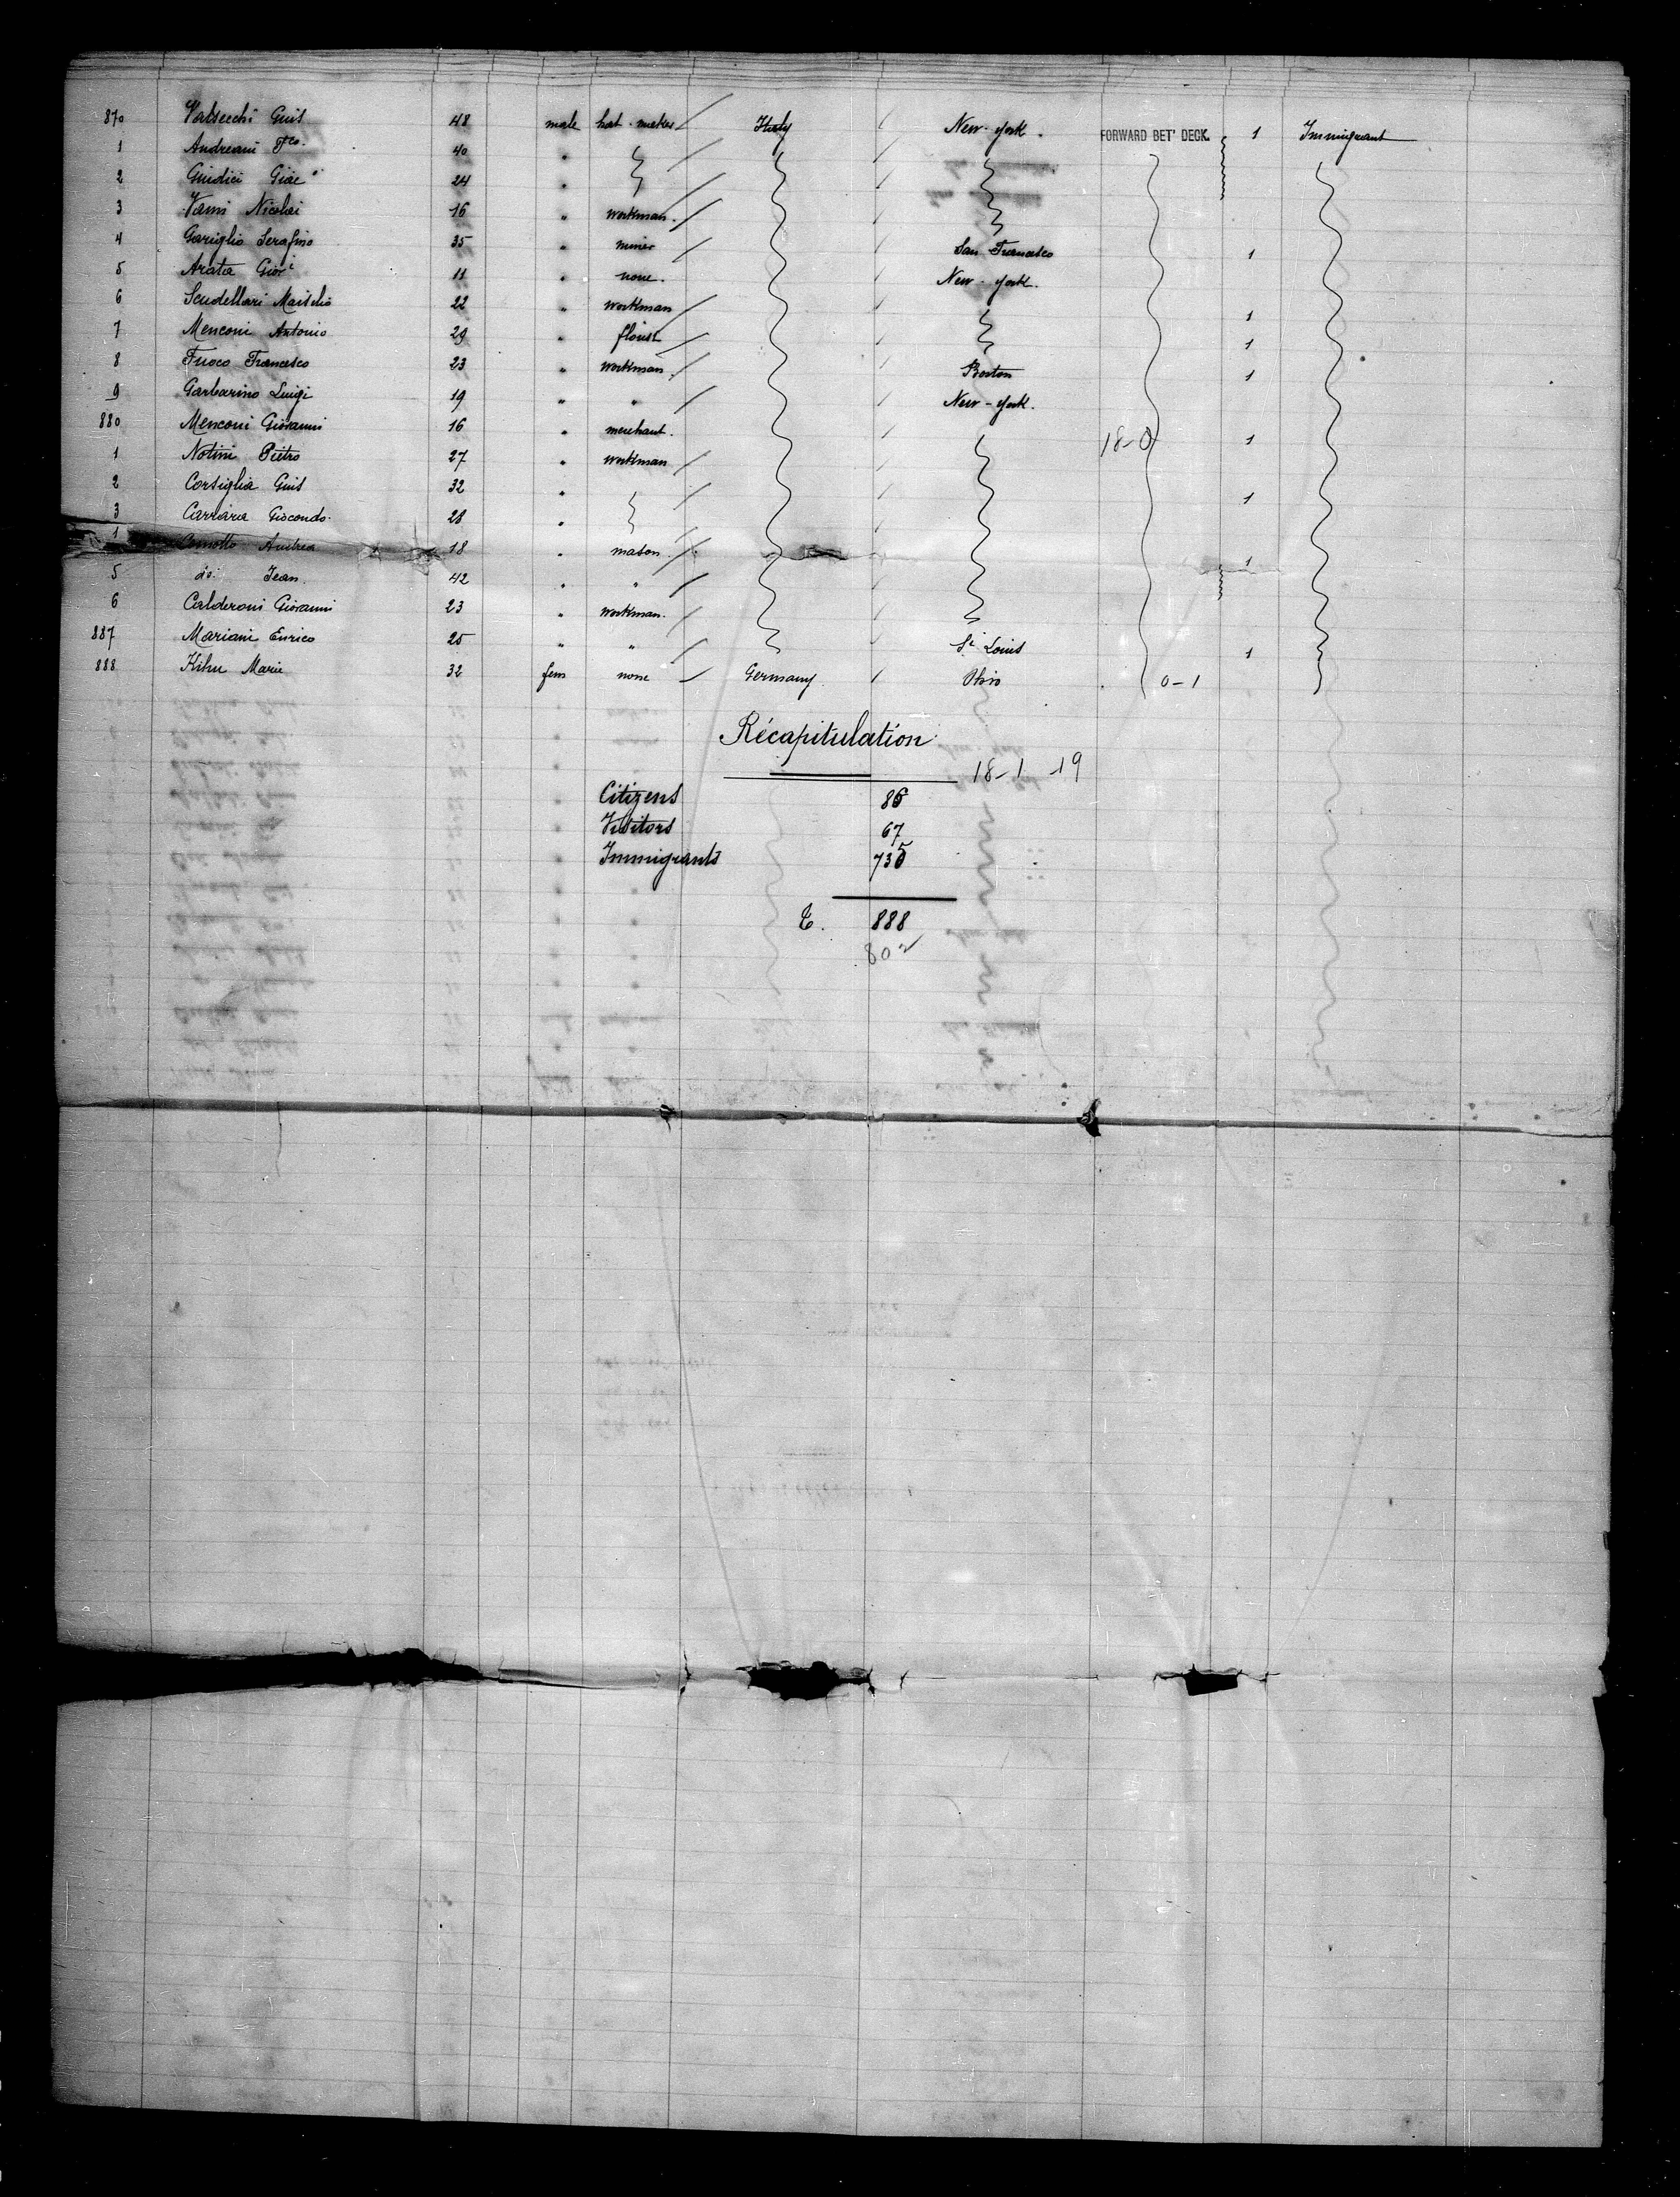 870 Valsecchi Guis 48 male hat-maker Italy New-York. FORWARD BET' DECK. 1 Immigrant
1 Andreani Fco. 40 "
2 Guidici Giac 24 "
3 Vanni Nicolai 16 " workman.
4 Gariglio Serafino 35 " miner San Francisco 1
5 Arata Giovi 11 " none. New-York.
6 Scudellari 22 " workman 1
7 Menconi Antonio 29 " florist 1
8 Fuoco Francesco 23 " workman. Boston 1
9 Garbarino Luigi 19 " " New-York.
880 Menconi Giovanni 16 " merchant. 18-0 1
1 Notini Pietro 27 " workman
2 Corsiglia Guis 32 " 1
3 Carrara Giocondo. 28 "
Andrea 18 " mason. 1
5 do. Jean. 42 " "
6 Calderoni Giovanni 23 " workman.
887 Mariani Enrico 25 " " St Louis 1
888 Kihn Marie 32 fem none Germany. Ohio 0-1
Récapitulation
18-1-19
Citizens 86
Visitors 67
Immigrants 735
T. 888
802